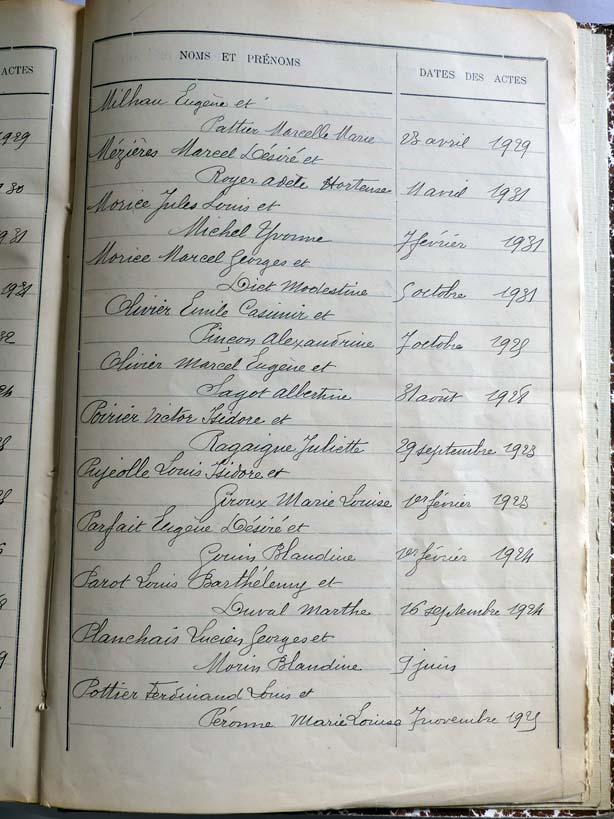 ACTES
NOMS ET PRÉNOMS
DATES DES ACTES
Milhau Eugène et
1929
Pattier Marcelle Marie 23 avril 1929
Mézières Marcel Désiré et
30
Royer adèle Hortense 11 avril 1931
Morice Jules Louis et
1931
Michel Yvonne 7 février 1931
Morice Marcel Georges et
1931
Diet Modestine 5 octobre 1931
Olivier Emile Casimir et
32
Pinçon Alexandrine 7 octobre
Olivier Marcel Eugène et
Sagot Albertine 31 août
Poirier Victor Isidore et
Ragaigne Juliette 29 septembre 1923
Pujeolle Louis Isidore et
Giroux Marie Louise 1er février 1923
Parfait Eugène Désiré et
Gouin Blandine 1er février 1924
Parot Louis Barthélemy et
Duval Marthe 16 septembre 1924
Planchais Lucien Georges et
Morin Blandine 9 juin
Pottier Ferdinand Louis et
Péronne Marie Louise 7 novembre